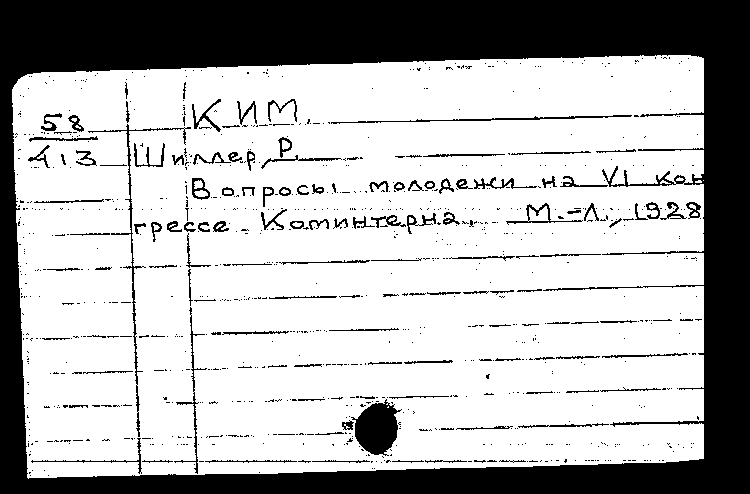 КИМ.
58
413
Шиллер, Р.
Вопросы молодежи на VI кон
грессе Коминтерна. М.-Л., 1928